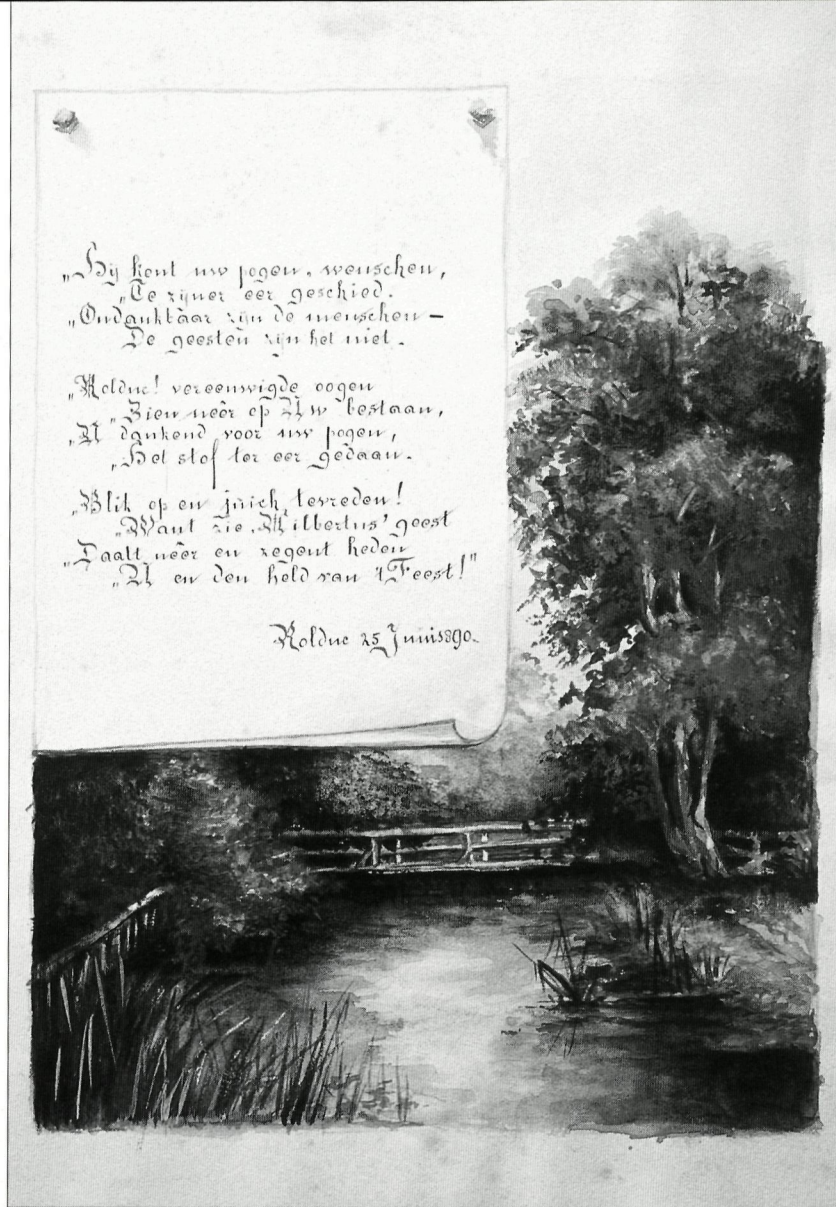 „Hij kent uw pogen, wenschen,
„Te zijner eer geschied.
„Ondankbaar zijn de menschen —
De geesten zijn het niet.
„Rolduc! vereeuwigde oogen
„Zien neêr op Uw bestaan,
„U dankend voor uw pogen,
„Het stof ter eer gedaan.
„Blik op en juich, tevreden!
„Want zie, Wilbertus' geest
„Daalt neêr en zegent heden
„U en den held van 't Feest!"
Rolduc 25 Juni 1890.